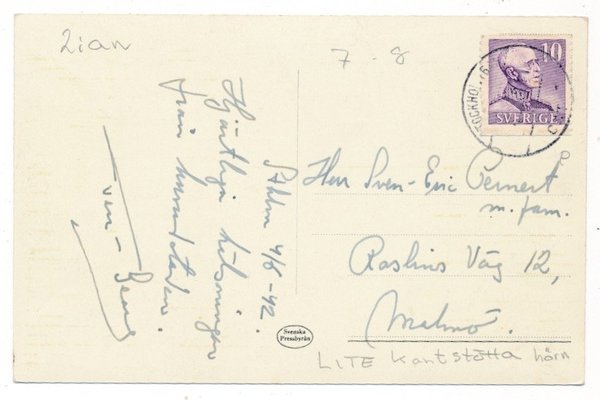 Lian
7 - 8
10
SVERIGE
STOCKHOLM
Sthlm 4/8-42.
Hjärtliga hälsningar
från huvudstaden.
Herr Sven-Eric Pernert
m. fam.
Roslins Väg 12,
Malmö.
Svenska
Pressbyrån
LITE kantstötta hörn